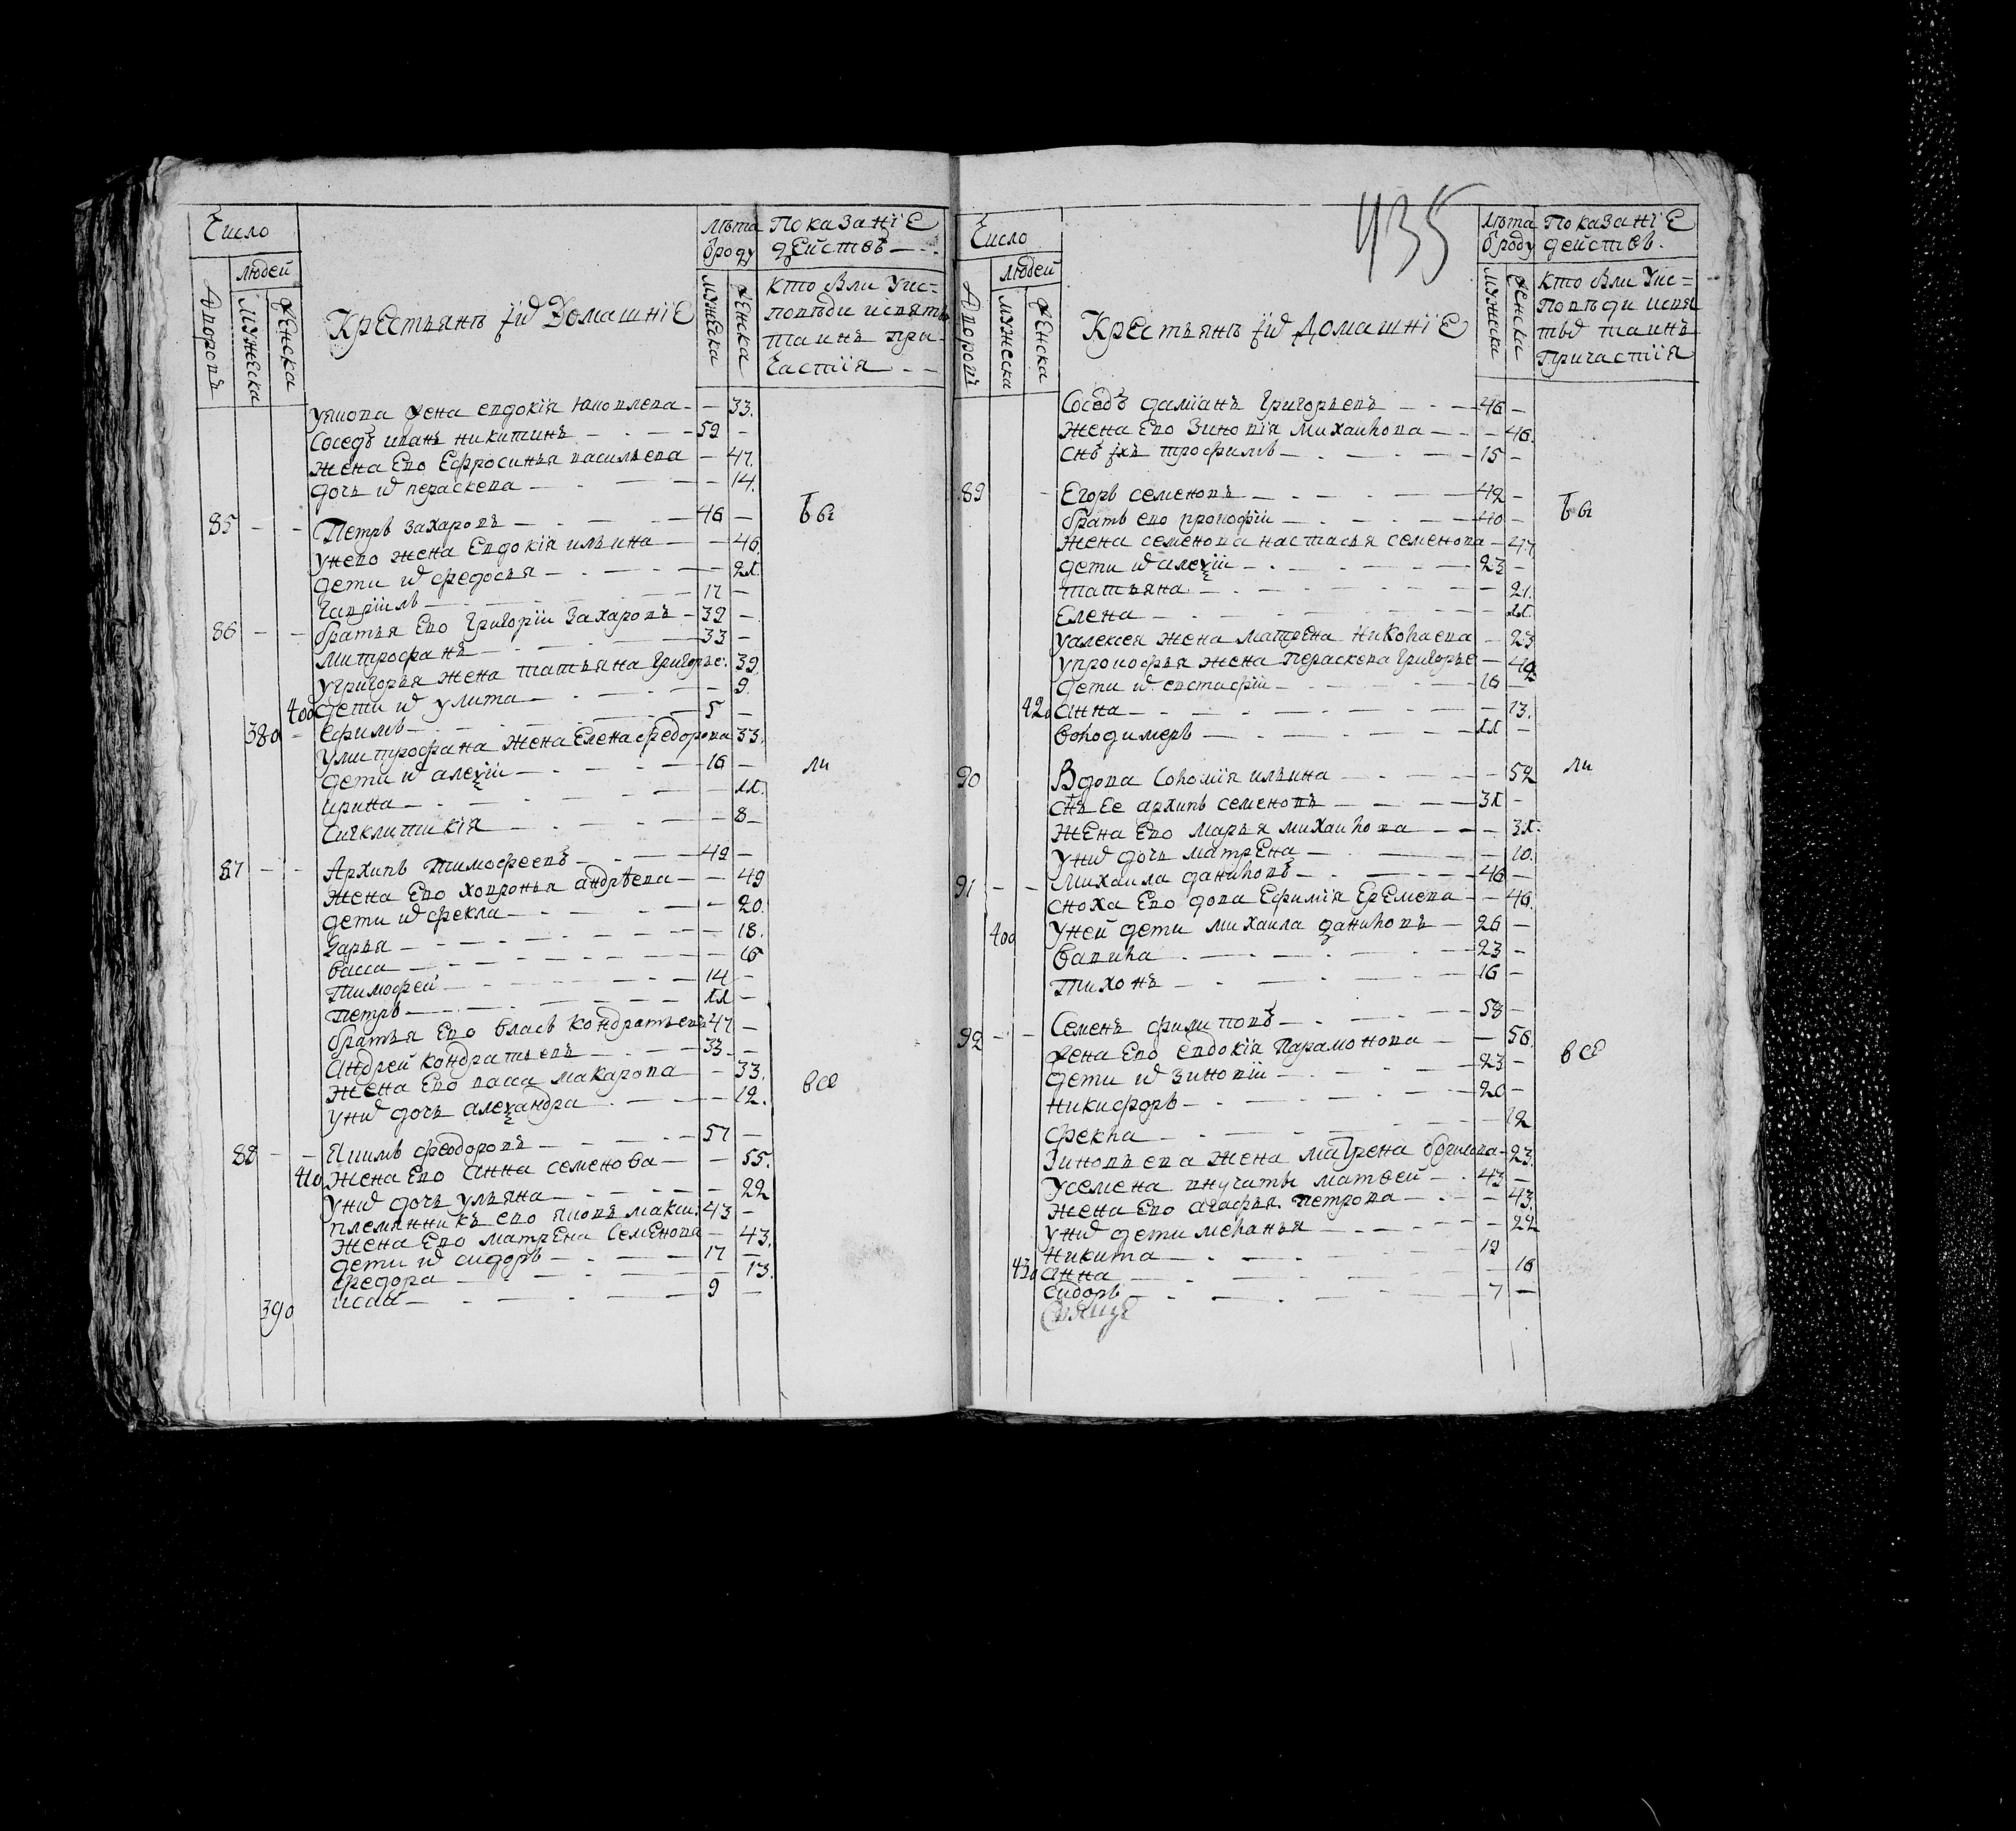 Число
людей
Адворовъ
Мужеска
Женска
Крестьянъ ихъ домашние
Лѣта от роду
мужеска
женска
Показаніе действъ
кто были у исповѣди и святыхъ таинъ причастія
жена евдокія — 33.
Соседъ иванъ никитинъ — 52 —
жена ево Ефросинья васильева — 47.
дочь их параскева — 14.
85 Петръ захаровъ — 46 — бы
у нево жена Евдокія ильина — 46.
дети их федосья — 21.
Гаврилъ — 17 —
86 братья ево Григорій Захаровъ — 39 —
митрофанъ — 33 —
у григорья жена татьяна Григорье. 39.
400 дети их улита — 9.
380 Ефимъ — 5 —
у митрофана жена Елена федорова 33.
дети их алеѯій — 16 — ли
ирина — 11.
Сигклитикія — 8 —
87 Архипъ тимофеевъ — 49 —
жена Ево ховронья андрѣева — 49
дети их фекла — 20.
Дарья — 18.
васса — 16
Тимофей — 14 —
петръ — 11 —
братья Ево власъ кондратьевъ 47 —
андрей кондратьевъ — 33 —
жена Ево васса макарова — 33.
у них дочь алеѯандра — 12. все
88 Якимъ феодоровъ — 57 —
410 жена Ево анна семенова — 55.
у них дочь ульяна — 22
племянникъ ево яковъ макси. 43 —
жена Ево матрена Семенова — 43.
дети их сидоръ — 17 —
федора — 13.
390 исай — 9 —
435
Число
людей
Адворовъ
Мужеска
Женска
Крестьянъ ихъ домашніе
Лѣта от роду
мужески
женски
Показаніе действъ.
кто были у исповѣди и святыхъ таинъ причастія
Соседъ даміанъ Григорьевъ — 46 —
Жена Ево Зиновія Михаилова — 46.
снъ ихъ трофимъ — 15 —
89 Егоръ семеновъ — 42 — бы
братъ ево прокофій — 40 —
жена семенова настасья семенова — 47
дети их алеѯій — 23 —
татьяна — 21.
Елена — 11.
у алексея жена матрена николаева — 23
у прокофья жена параскева Григорье — 42
дети их евстафій — 16 —
420 анна — 13.
володимеръ — 11 —
90 Вдова Соломія ильина — 52 ли
снъ Ее архипъ семеновъ — 31 —
жена Ево марья михаилова — 31.
у них дочь матрена — 10.
91 михаила даниловъ — 46 —
сноха Ево вдова Ефимія Еремева — 46.
400 у ней дети михаила даниловъ — 26 —
вавила — 23 —
Тихонъ — 16 —
92 Семенъ филиповъ — 58 —
жена Ево евдокія Парамонова — 56. все
дети их зиновій — 23 —
никифоръ — 20 —
фекла — 12
Зиновьева жена матрена — 23.
у семена внучатъ матвей — 43 —
жена Ево агафья петрова — 43.
у них дети меланья — 22
никита — 19
430 анна — 16
сидоръ — 7 —